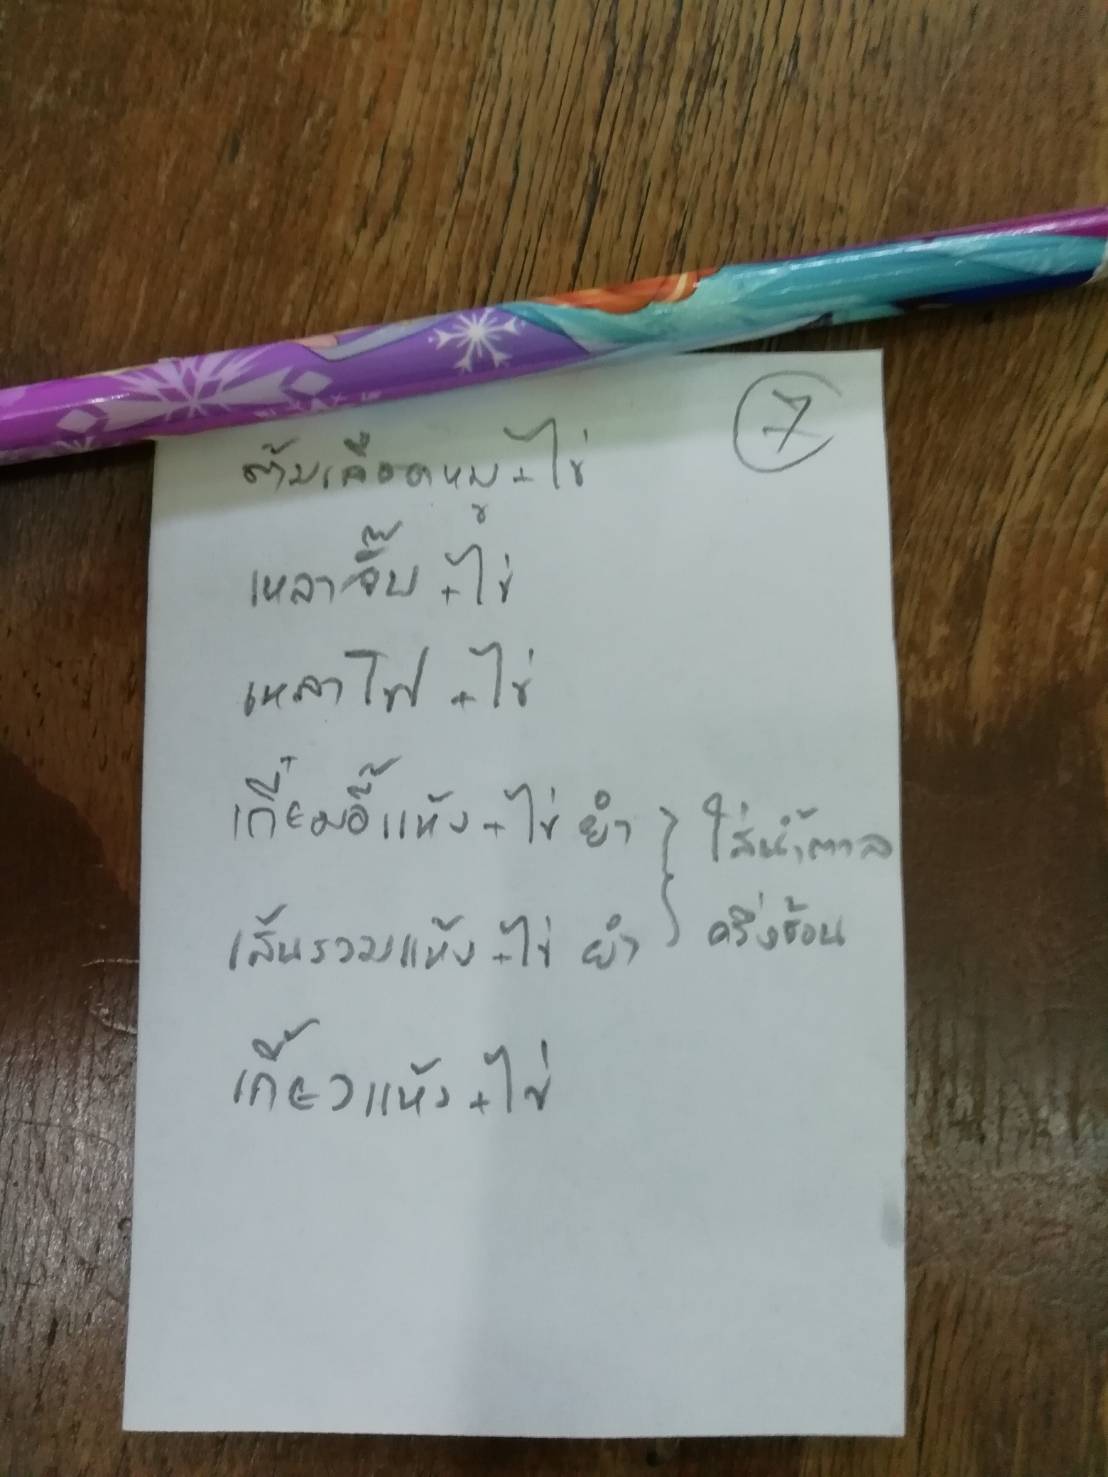 7
ต้มเลือดหมู+ไข่
เหลาจี๊บ+ไข่
เหลาโฟ+ไข่
เกี้ยมอี๋แห้ง+ไข่ ยำ
ใส่น้ำตาล
เส้นรวมแห้ง+ไข่ ยำ
ครึ่งช้อน
เกี๊ยวแห้ง+ไข่